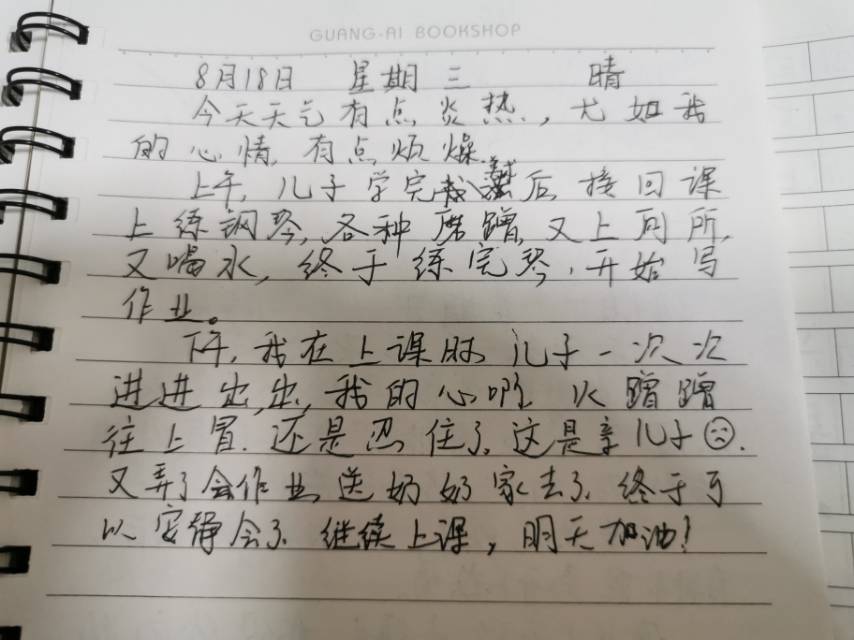 GUANG-AI BOOKSHOP
8月18日 星期三 晴
今天天气有点炎热,尤如我
的心情,有点烦燥.
上午,儿子学完后接回课
上练钢琴,各种磨蹭,又上厕所,
又喝水,终于练完琴,开始写
作业。
下午,我在上课时,儿子一次次
进进出出,我的心啊 火蹭蹭
往上冒.还是忍住了,这是亲儿子☹.
又弄了会作业,送奶奶家去了,终于可
以安静会了 继续上课,明天加油!